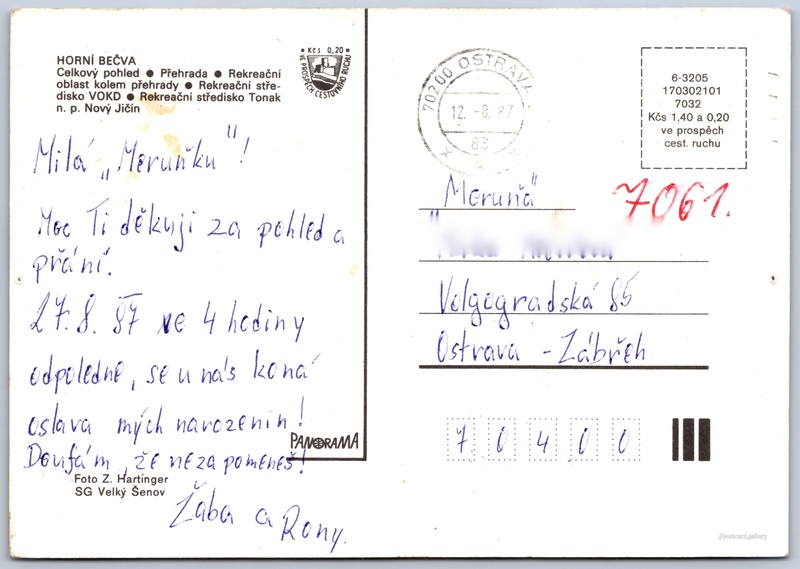 HORNÍ BEČVA
Celkový pohled ● Přehrada ● Rekreační
oblast kolem přehrady ● Rekreační stře-
disko VOKD ● Rekreační středisko Tonak
n. p. Nový Jičín
● Kčs 0,20 ●
VE PROSPĚCH CESTOVNÍHO RUCHU
70200 OSTRAVA
12.-8.87
83
6-3205
170302101
7032
Kčs 1,40 a 0,20
ve prospěch
cest. ruchu
Milá „Meruňku"!
Moc Ti děkuji za pohled a
přání.
27.8.87 ve 4 hodiny
odpoledne, se u nás koná
oslava mých narozenin!
Doufám, že nezapomeneš!
Žaba a Rony.
PANORAMA
Foto Z. Hartinger
SG Velký Šenov
"Meruňa"
7061.
Volgogradská 85
Ostrava - Zábřeh
70400
postcard.gallery